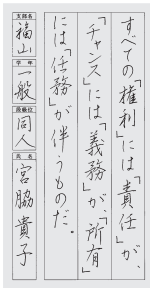 すべての「権利」には「責任」が、
「チャンス」には「義務」が、「所有」
には「任務」が伴うものだ。
支部名
福山
学年
一般
段級位
同人
氏名
宮脇貴子